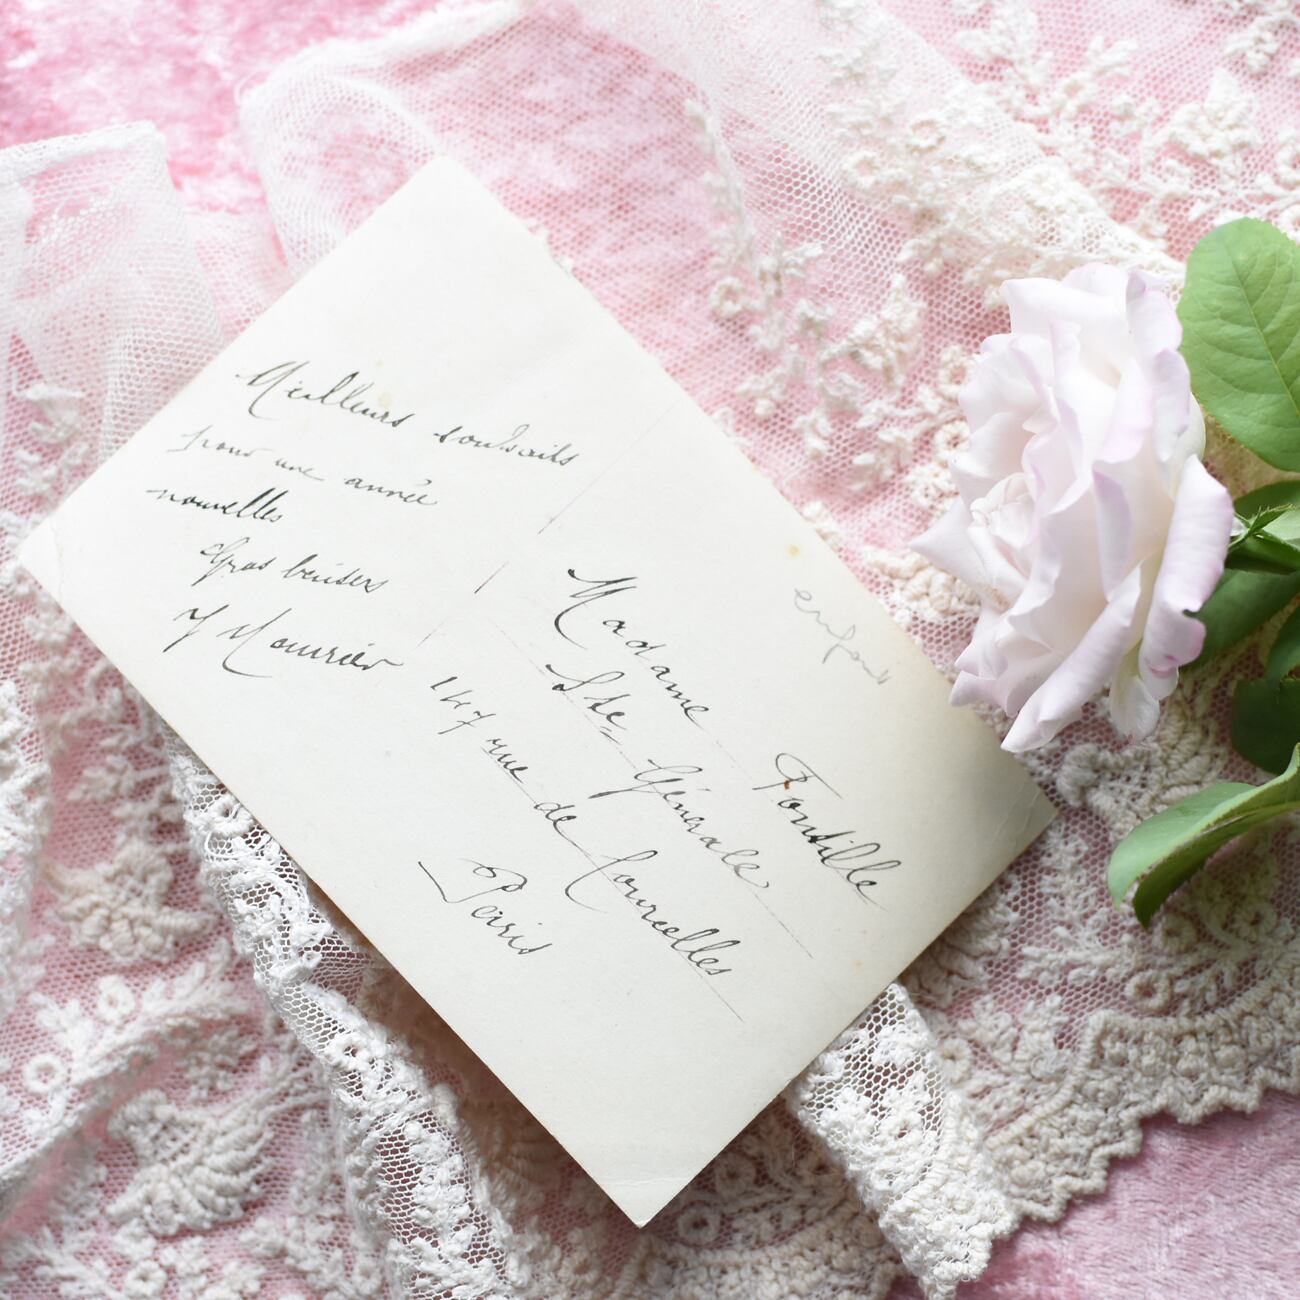 Meilleurs souhaits
pour une année
nouvelles
Gros baisers
Y Mourier
enfant
Madame Fontille
Sté Générale
147 rue de Courcelles
Paris